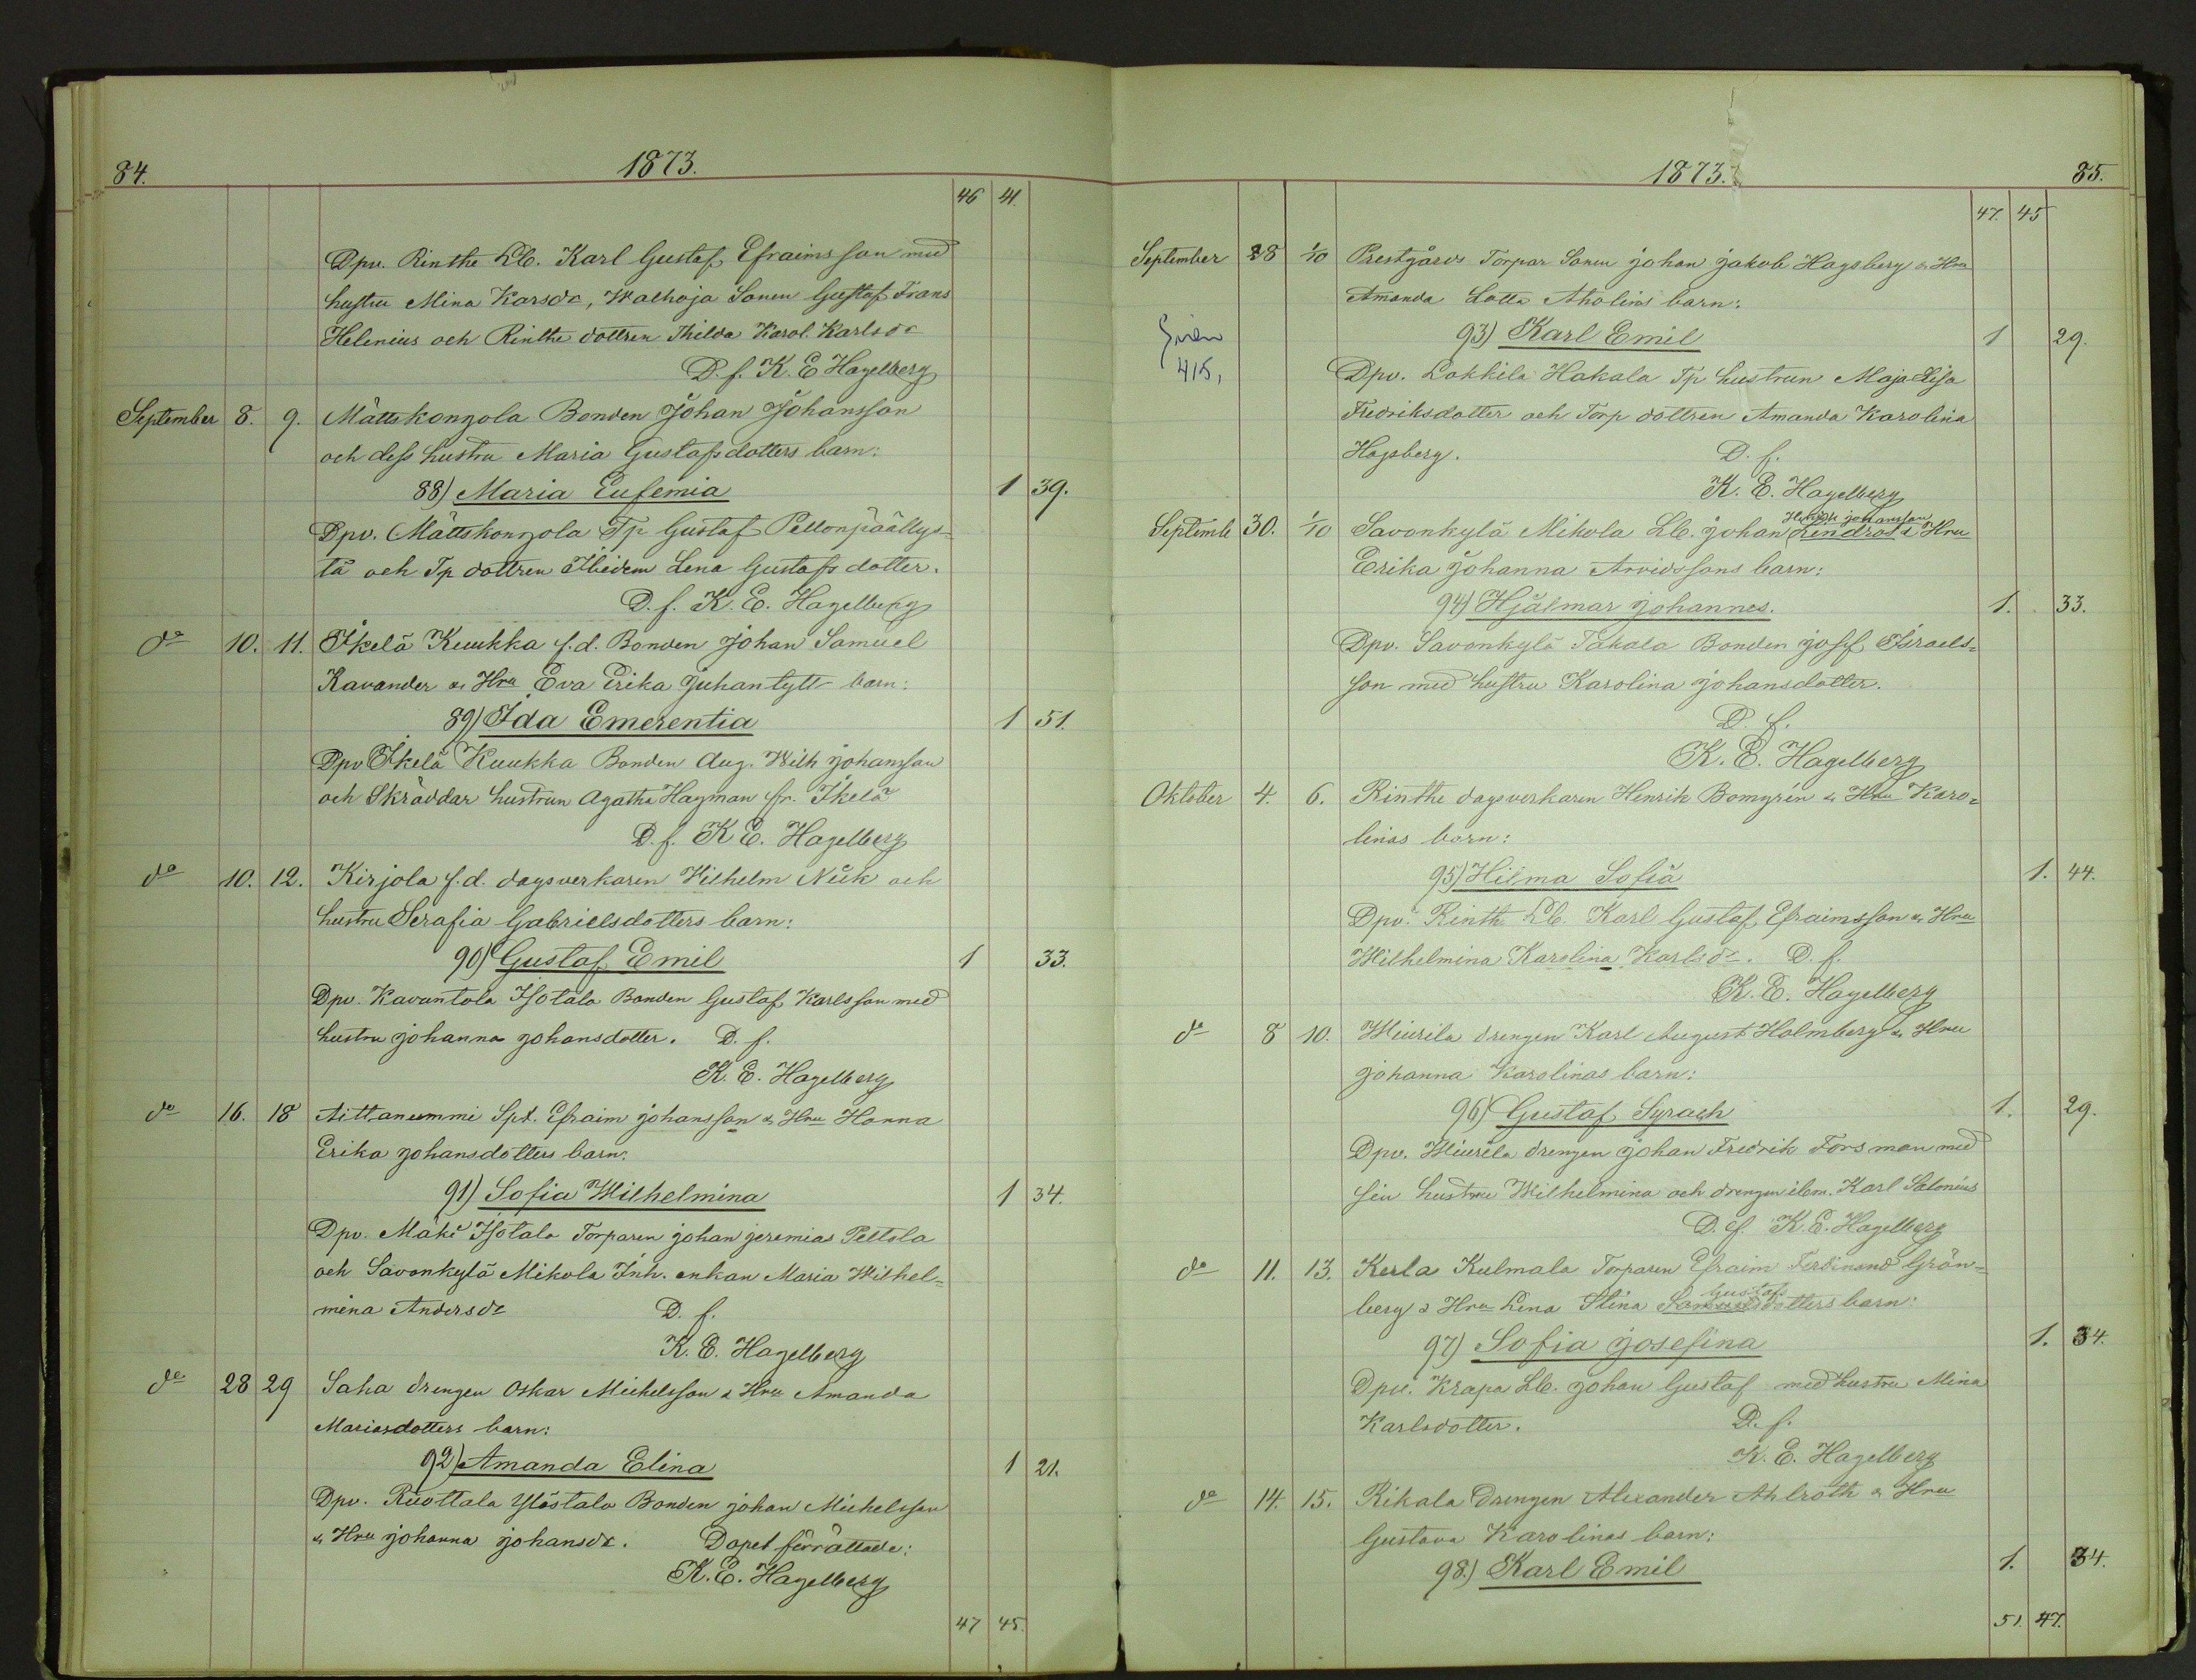 84.
1873.
46 41.
Dpv. Rinthe Lb. Karl Gustaf Efraimsson med
hustru Mina Karsdr, Walhoja Sonen Gustaf Frans
Helenius och Rinthe dottren Thilda Karol. Karlsdr
D. f. K. E Hagelberg
September 8. 9. Mattskonzola Bonden Johan Johansson
och dess hustru Maria Gustafsdotters barn:
88) Maria Eufemia 1 39.
Dpv. Mattskonzola Tp Gustaf Pellonpäällys-
tä och Tp dottren Ibidem Lena Gustafs dotter.
D. f. K. E. Hagelberg
do 10. 11. Ikelä Kuukka f. d. Bonden Johan Samuel
Kavander & Hru Eva Erika Juhantytt barn:
89) Ida Emerentia 1 51.
Dpv Ikelä Kuukka Bonden Aug. Wilh Johansson
och Skräddar hustrun Agatha Hagman fr. Ikelä
D. f. K E. Hagelberg
do 10. 12. Kirjola f. d. dagsverkaren Wilhelm och
hustru Serafia Gabrielsdotters barn:
90) Gustaf Emil 1 33.
Dpv. Kavantola Isotalo Bonden Gustaf Karlsson med
hustru Johanna Johansdotter. D. f.
K. E. Hagelberg
do 16. 18 Aittanummi Spt. Efraim Johansson & Hru Hanna
Erika Johansdotters barn:
91) Sofia Wilhelmina 1 34.
Dpv. Mäki Isotalo Torparen Johan Jeremias Peltola
och Savonkylä Mikola Inh. enkan Maria Wilhel=
mina Andersdr D. f.
K. E. Hagelberg
do 28 29 Saha drengen Oskar Michelsson & Hru Amanda
Mariasdotters barn:
92) Amanda Elina 1 21.
Dpv. Ruottala Ylöstalo Bonden Johan Michelsson
& Hru Johanna Johansdr. Dopet förrättade:
K. E. Hagelberg
47 45.
1873.
85.
47. 45
September 28 1/10 Prestgårds Torpar Sonen Johan Jakob Hagsberg & Hru
Amanda Lotta Aholins barn:
93) Karl Emil 1 29.
415,
Dpv. Lakkila Hakala Tp hustrun Maja Lisa
Fredriksdotter och Torp dottren Amanda Karolina
Hagsberg. D. f.
K. E. Hagelberg
Henrik Johansson
Septemb 30. 1/10 Savonkylä Mikola Lb. Johan Lindros & Hru
Erika Johanna Arvidssons barn:
94) Hjalmar Johannes. 1. 33.
Dpv. Savonkylä Takala Bonden Josef Israels=
son med hustru Karolina Johansdotter.
D. f.
K. E. Hagelberg
Oktober 4. 6. Rinthe dagsverkaren Henrik Bomgrén & Hru Karo=
linas barn:
95) Hilma Sofia 1. 44.
Dpv. Rinth Lb. Karl Gustaf Efraimsson & Hru
Wilhelmina Karolina Karlsdr. D. f.
K. E. Hagelberg
do 8 10. Wiurila drengen Karl August Holmberg & Hru
Johanna Karolinas barn:
96) Gustaf Syrach 1. 29.
Dpv. Wiurila drengen Johan Fredrik Forsman med
sin hustru Wilhelmina och drengen ibm. Karl Salonius
D. f. K. E. Hagelberg
do 11. 13. Kerla Kulmala Torparen Efraim Ferdinand Grön=
Gustafs
berg & Hru Lena Stina Samuelsdotters barn:
97) Sofia Josefina 1. 34.
Dpv. Krapa Lb. Johan Gustaf med hustru Mina
Karlsdotter. D. f.
K. E. Hagelberg
do 14. 15. Rikala Drengen Alexander Ahlroth & Hru
Gustava Karolinas barn:
98.) Karl Emil 1. 34.
51. 47.